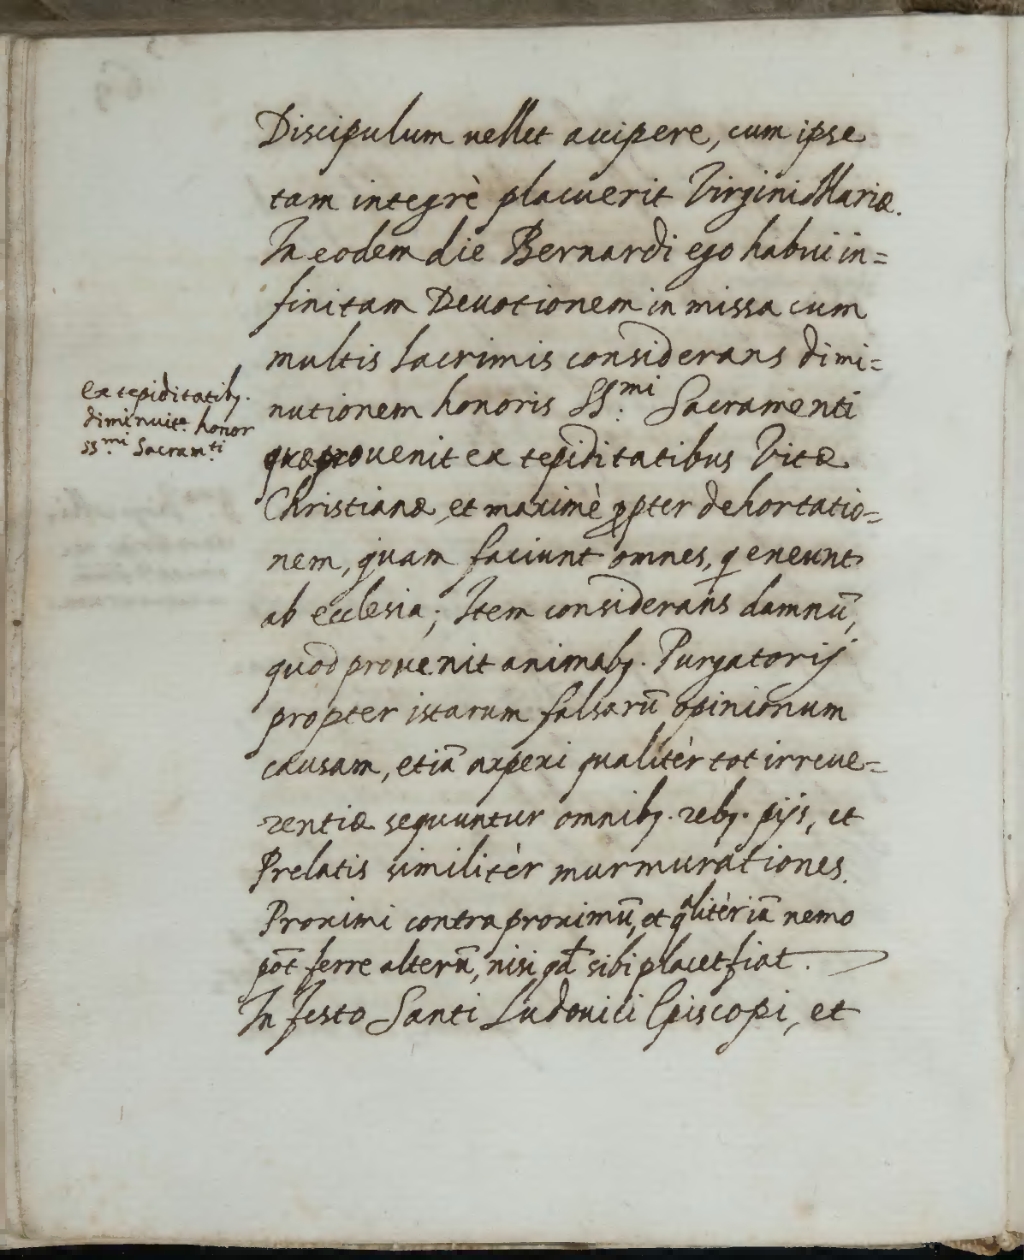 Discipulum vellet accipere, cum ipse
tam integrè placuerit Virgini Mariæ.
In eodem die Bernardi ego habui in=
finitam Deuotionem in missa cum
multis lacrimis considerans dimi=
nutionem honoris SS.mi Sacramenti
quæ prouenit ex tepiditatibus Vitæ
Christianæ, et maximè ꝓpter dehortatio=
nem, quam faciunt omnes, q̄ exeunt
ab ecclesia; Item considerans damnū,
quod prouenit animabꝫ. Purgatorij
propter istarum falsarū opinionum
causam, etiā aspexi qualitèr tot irreue=
rentiæ sequuntur omnibꝫ. rebꝫ. pijs, et
Prelatis similitèr murmurationes.
Proximi contra proximū, et qalitèr iā nemo
pōt ferre alterū, nisi qd sibi placet fiat.
In festo Santi Ludouici Episcopi, et
ex tepiditatibꝫ.
diminuitr honor
ss.mi Sacram.ti